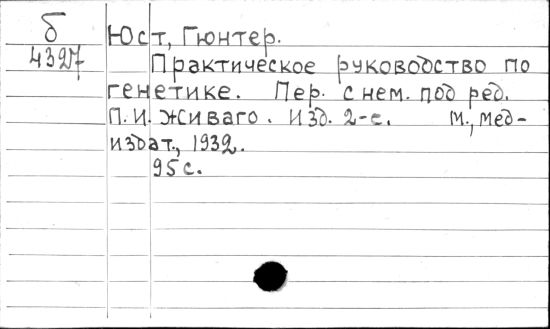 б
4327
Юст, Гюнтер.
Практическое руководство по
генетике. Пер. с нем. под ред.
П. И. Живаго. Изд. 2-е. М., Мед-
издат., 1932.
95 с.